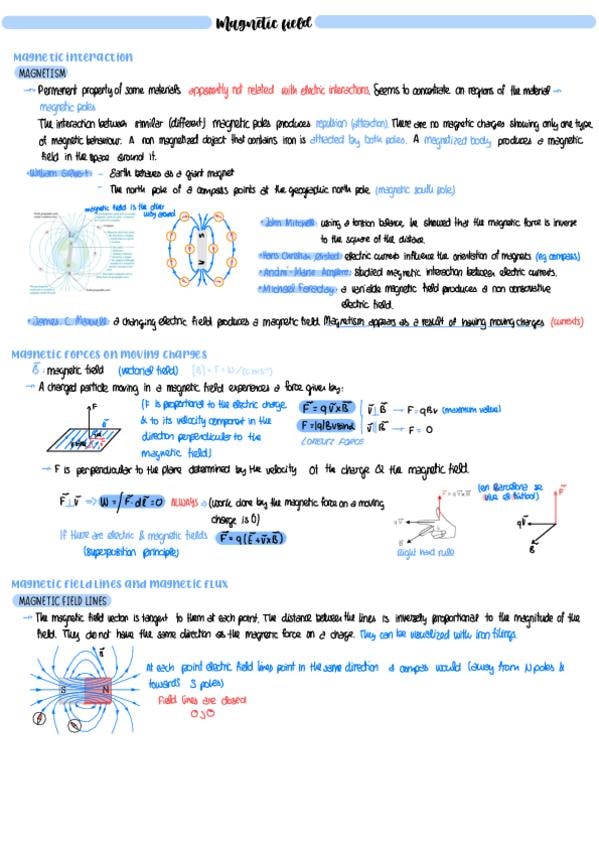 Magnetic field
Magnetic interaction
MAGNETISM
→ Permanent property of some materials apparently not related with electric interactions. Seems to concentrate on regions of the material →
magnetic poles
The interaction between similar (different) magnetic poles produces repulsion (attraction). There are no magnetic charges showing only one type
of magnetic behaviour. A non magnetized object that contains iron is attracted by both poles. A magnetized body produces a magnetic
field in the space around it.
• William Gilbert - Earth behaves as a giant magnet
- The north pole of a compass points at the geographic north pole (magnetic south pole)
magnetic field is the other
way around
• John Mitchell: using a torsion balance, he showed that the magnetic force is inverse
to the square of the distance.
• Hans Christian Ørsted: electric currents influence the orientation of magnets (eg compass)
• André-Marie Ampère: studied magnetic interaction between electric currents.
• Michael Faraday: a variable magnetic field produces a non conservative
electric field.
• James C. Maxwell: a changing electric field produces a magnetic field. Magnetism appears as a result of having moving charges (currents)
Magnetic forces on moving charges
B⃗: magnetic field (vectorial field)
→ A charged particle moving in a magnetic field experiences a force given by:
(F is proportional to the electric charge
& to its velocity component in the
direction perpendicular to the
magnetic field)
F⃗ = q v⃗ x B⃗
F = |q|Bv sinα
LORENTZ FORCE
v⃗ ⊥ B⃗ → F = qBv (maximum value)
v⃗ ∥ B⃗ → F = 0
→ F is perpendicular to the plane determined by the velocity of the charge & the magnetic field
F⃗ ⊥ v⃗ ⇒ W = ∫ F⃗ · dl⃗ = 0 ALWAYS → (work done by the magnetic force on a moving
charge is 0)
If there are electric & magnetic fields F⃗ = q(E⃗ + v⃗ x B⃗)
(superposition principle)
Right hand rule
Magnetic field lines and magnetic flux
MAGNETIC FIELD LINES
→ The magnetic field vector is tangent to them at each point. The distance between the lines is inversely proportional to the magnitude of the
field. They do not have the same direction as the magnetic force on a charge. They can be visualized with iron filings.
S N
At each point electric field lines point in the same direction a compass would (away from N poles &
towards S poles)
Field lines are closed